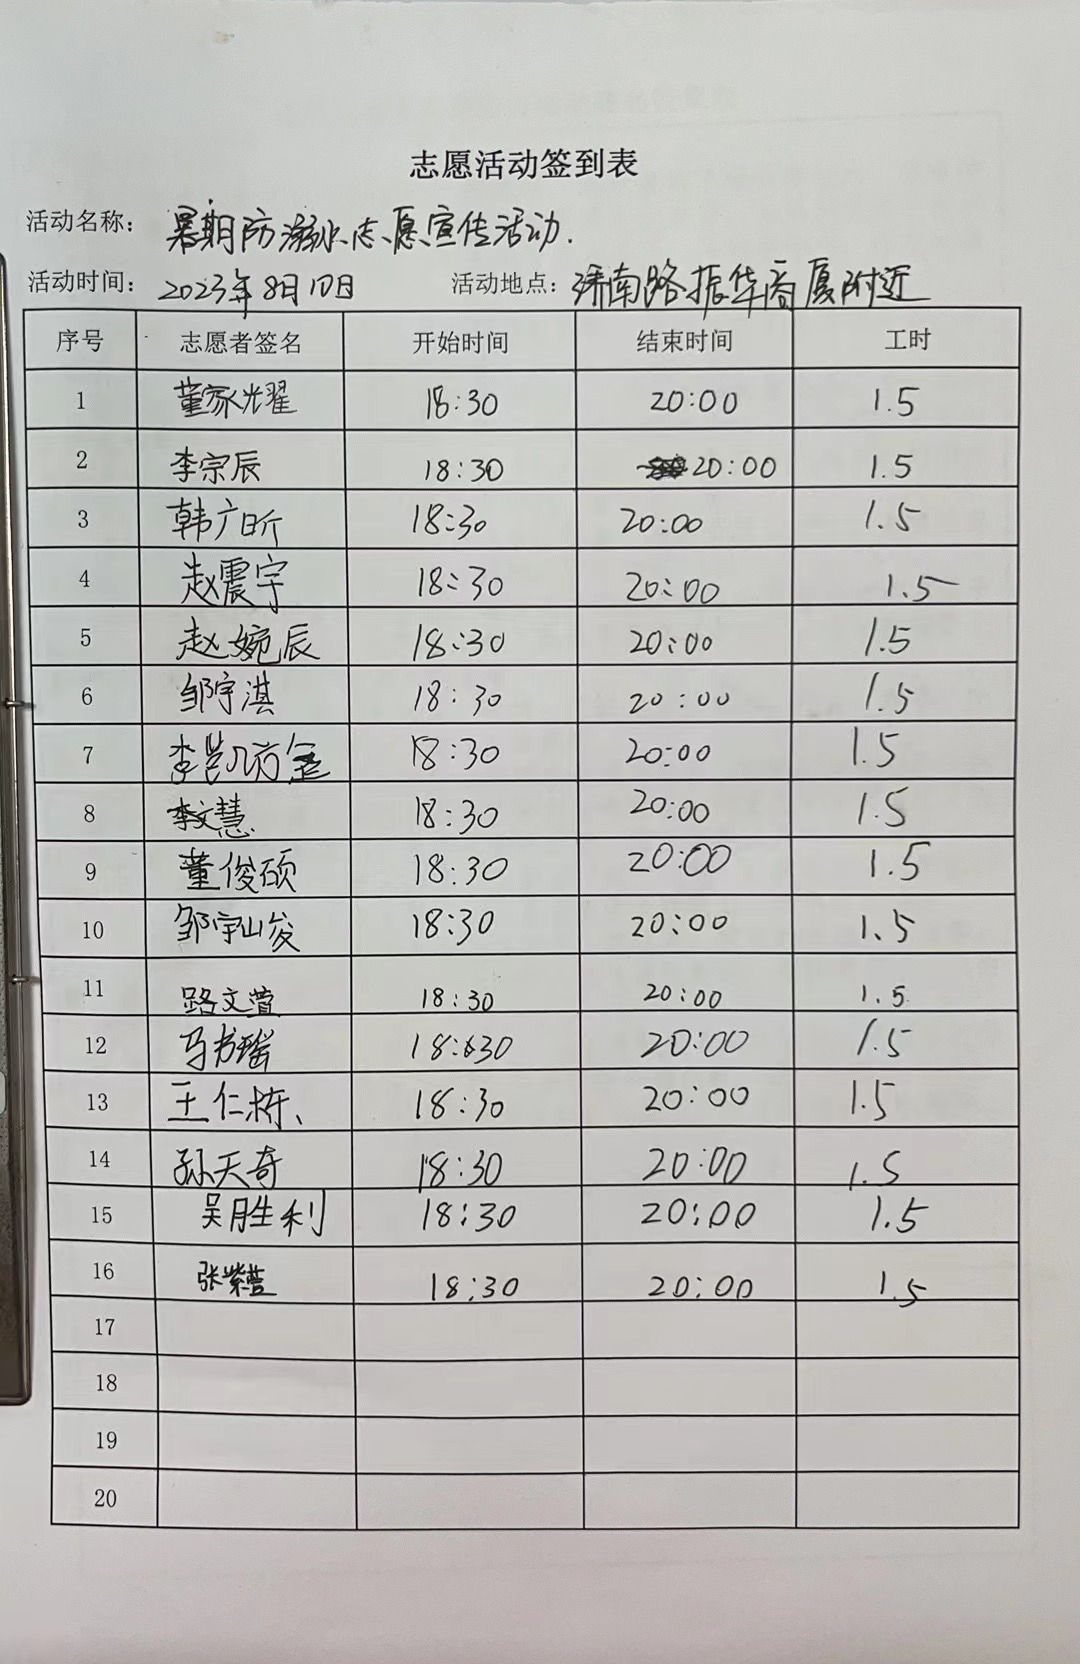 志愿活动签到表
活动名称: 暑期防溺水志愿宣传活动.
活动时间: 2023年8月10日 活动地点: 济南路振华商厦附近
序号 志愿者签名 开始时间 结束时间 工时
1 董家光耀 18:30 20:00 1.5
2 李宗辰 18:30 20:00 1.5
3 韩广昕 18:30 20:00 1.5
4 赵震宇 18:30 20:00 1.5
5 赵婉辰 18:30 20:00 1.5
6 邹宇淇 18:30 20:00 1.5
7 李凯方金 18:30 20:00 1.5
8 李文慧 18:30 20:00 1.5
9 董俊硕 18:30 20:00 1.5
10 邹宇峻 18:30 20:00 1.5
11 路文萱 18:30 20:00 1.5
12 马书瑶 18:30 20:00 1.5
13 王仁栋、 18:30 20:00 1.5
14 孙天奇 18:30 20:00 1.5
15 吴胜利 18:30 20:00 1.5
16 张紫萱 18:30 20:00 1.5
17
18
19
20